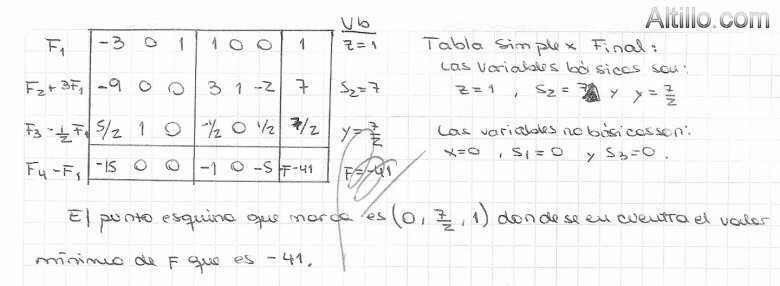 Altillo.com
Vb
F₁ -3 0 1 1 0 0 1 z=1
F₂+3F₁ -9 0 0 3 1 -2 7 S₂=7
F₃-½F₁ 5/2 1 0 -1/2 0 1/2 7/2 y=7/2
F₄-F₁ -15 0 0 -1 0 -5 F-41 F=-41
Tabla Simplex Final:
Las variables básicas son:
z=1 , S₂=7 y y=7/2
Las variables no básicas son:
x=0 , S₁=0 y S₃=0.
El punto esquina que marca es (0, 7/2, 1) donde se encuentra el valor
mínimo de F que es -41.